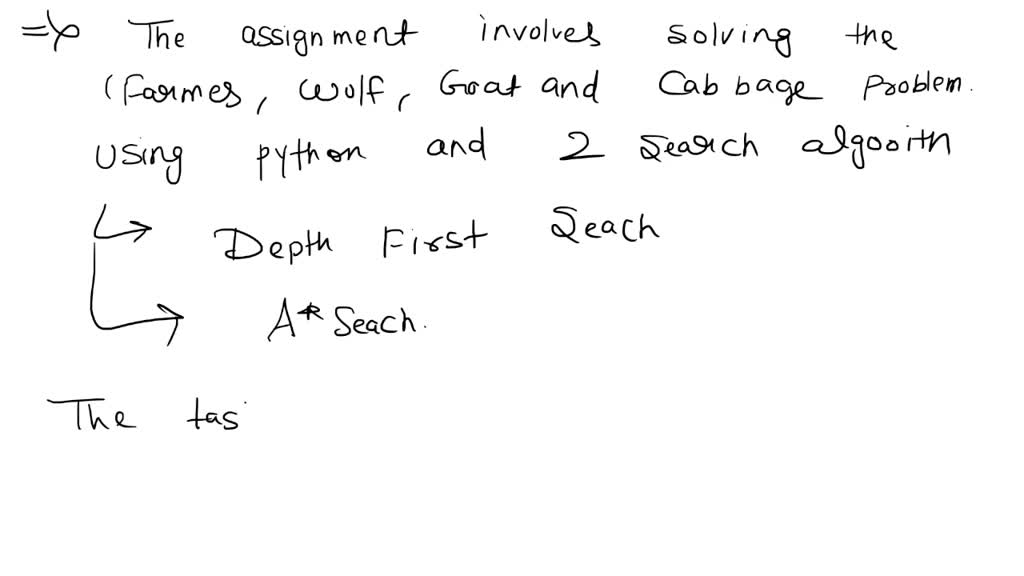 => The assignment involves solving the
(Farmes, Wolf, Goat and Cabbage Problem.
Using python and 2 Search algooith
Depth First Seach
A* Seach.
The tas